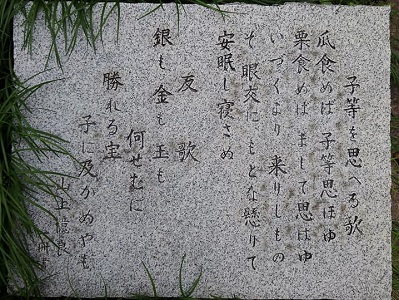 子等を思へる歌
瓜食めば 子等思ほゆ
栗食めば まして思ほゆ
いづくより 来りしもの
そ 眼交に もとな懸りて
安眠し寝さぬ
反歌
銀も 金も 玉も
何せむに
勝れる宝
子に及かめやも
山上憶良